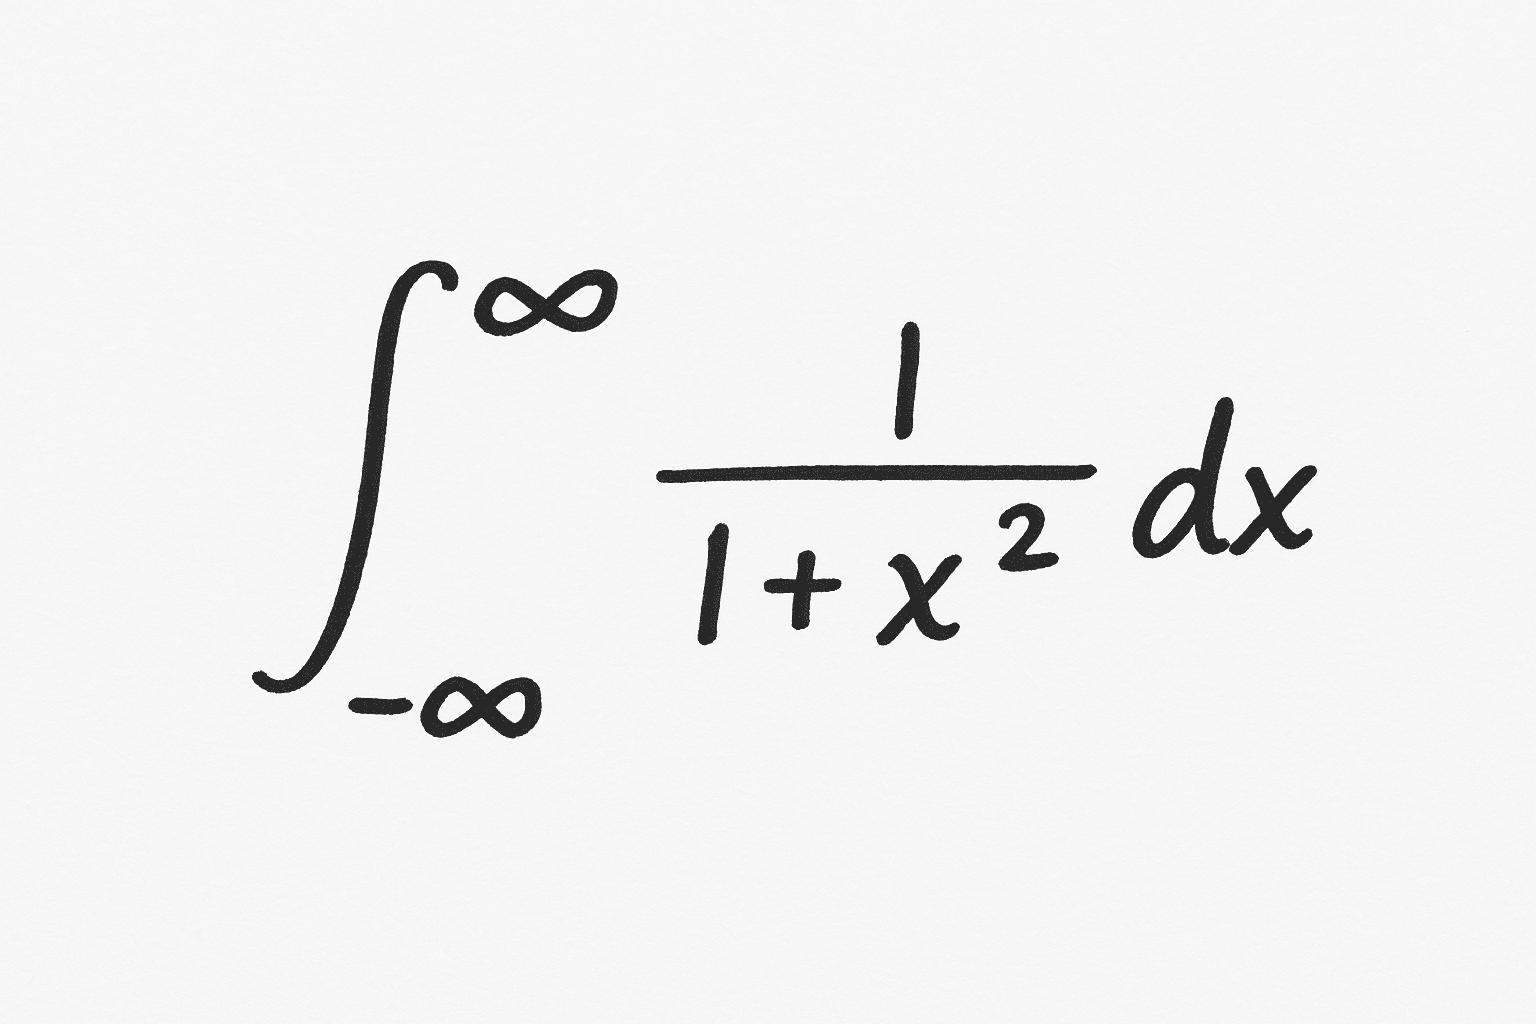 ∫_{-∞}^{∞} \frac{1}{1+x^2} dx